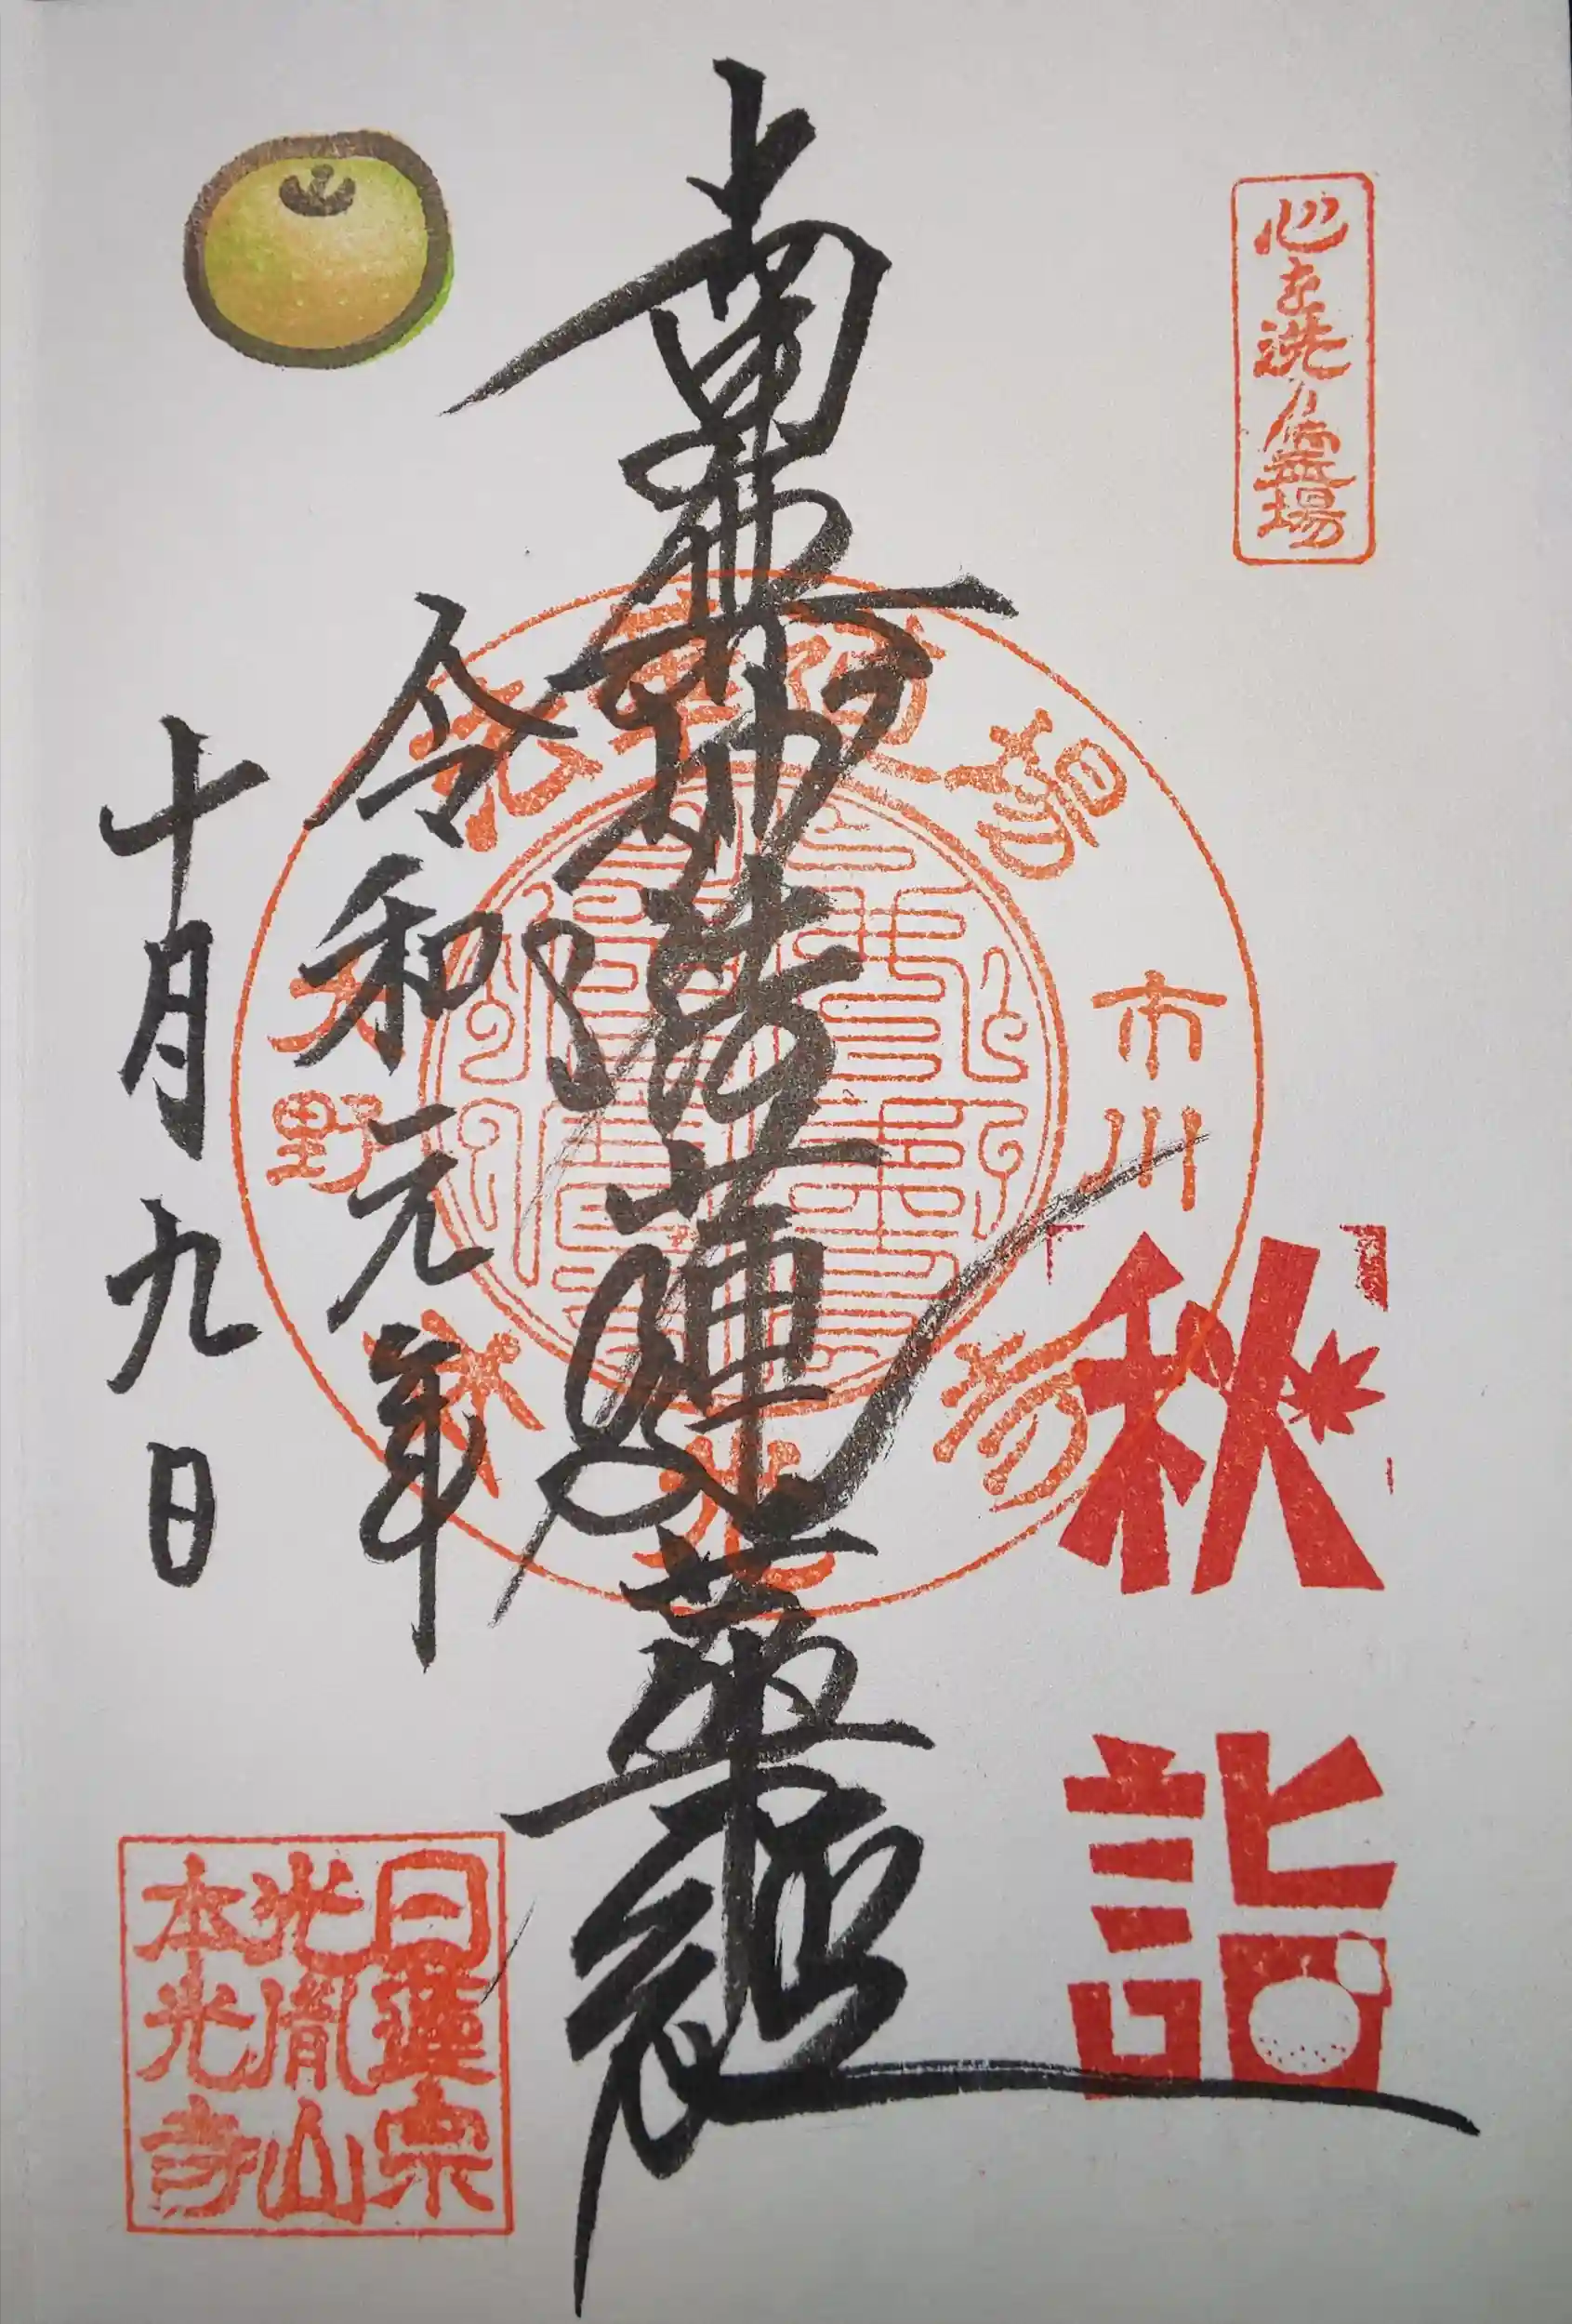 心を洗う霊場
秋詣
市川
南無妙法蓮華経
令和元年
十月九日
大野
日蓮宗
光胤山
本光寺